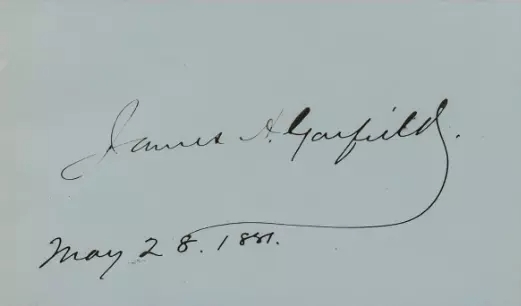 James A. Garfield.
May 28. 1881.